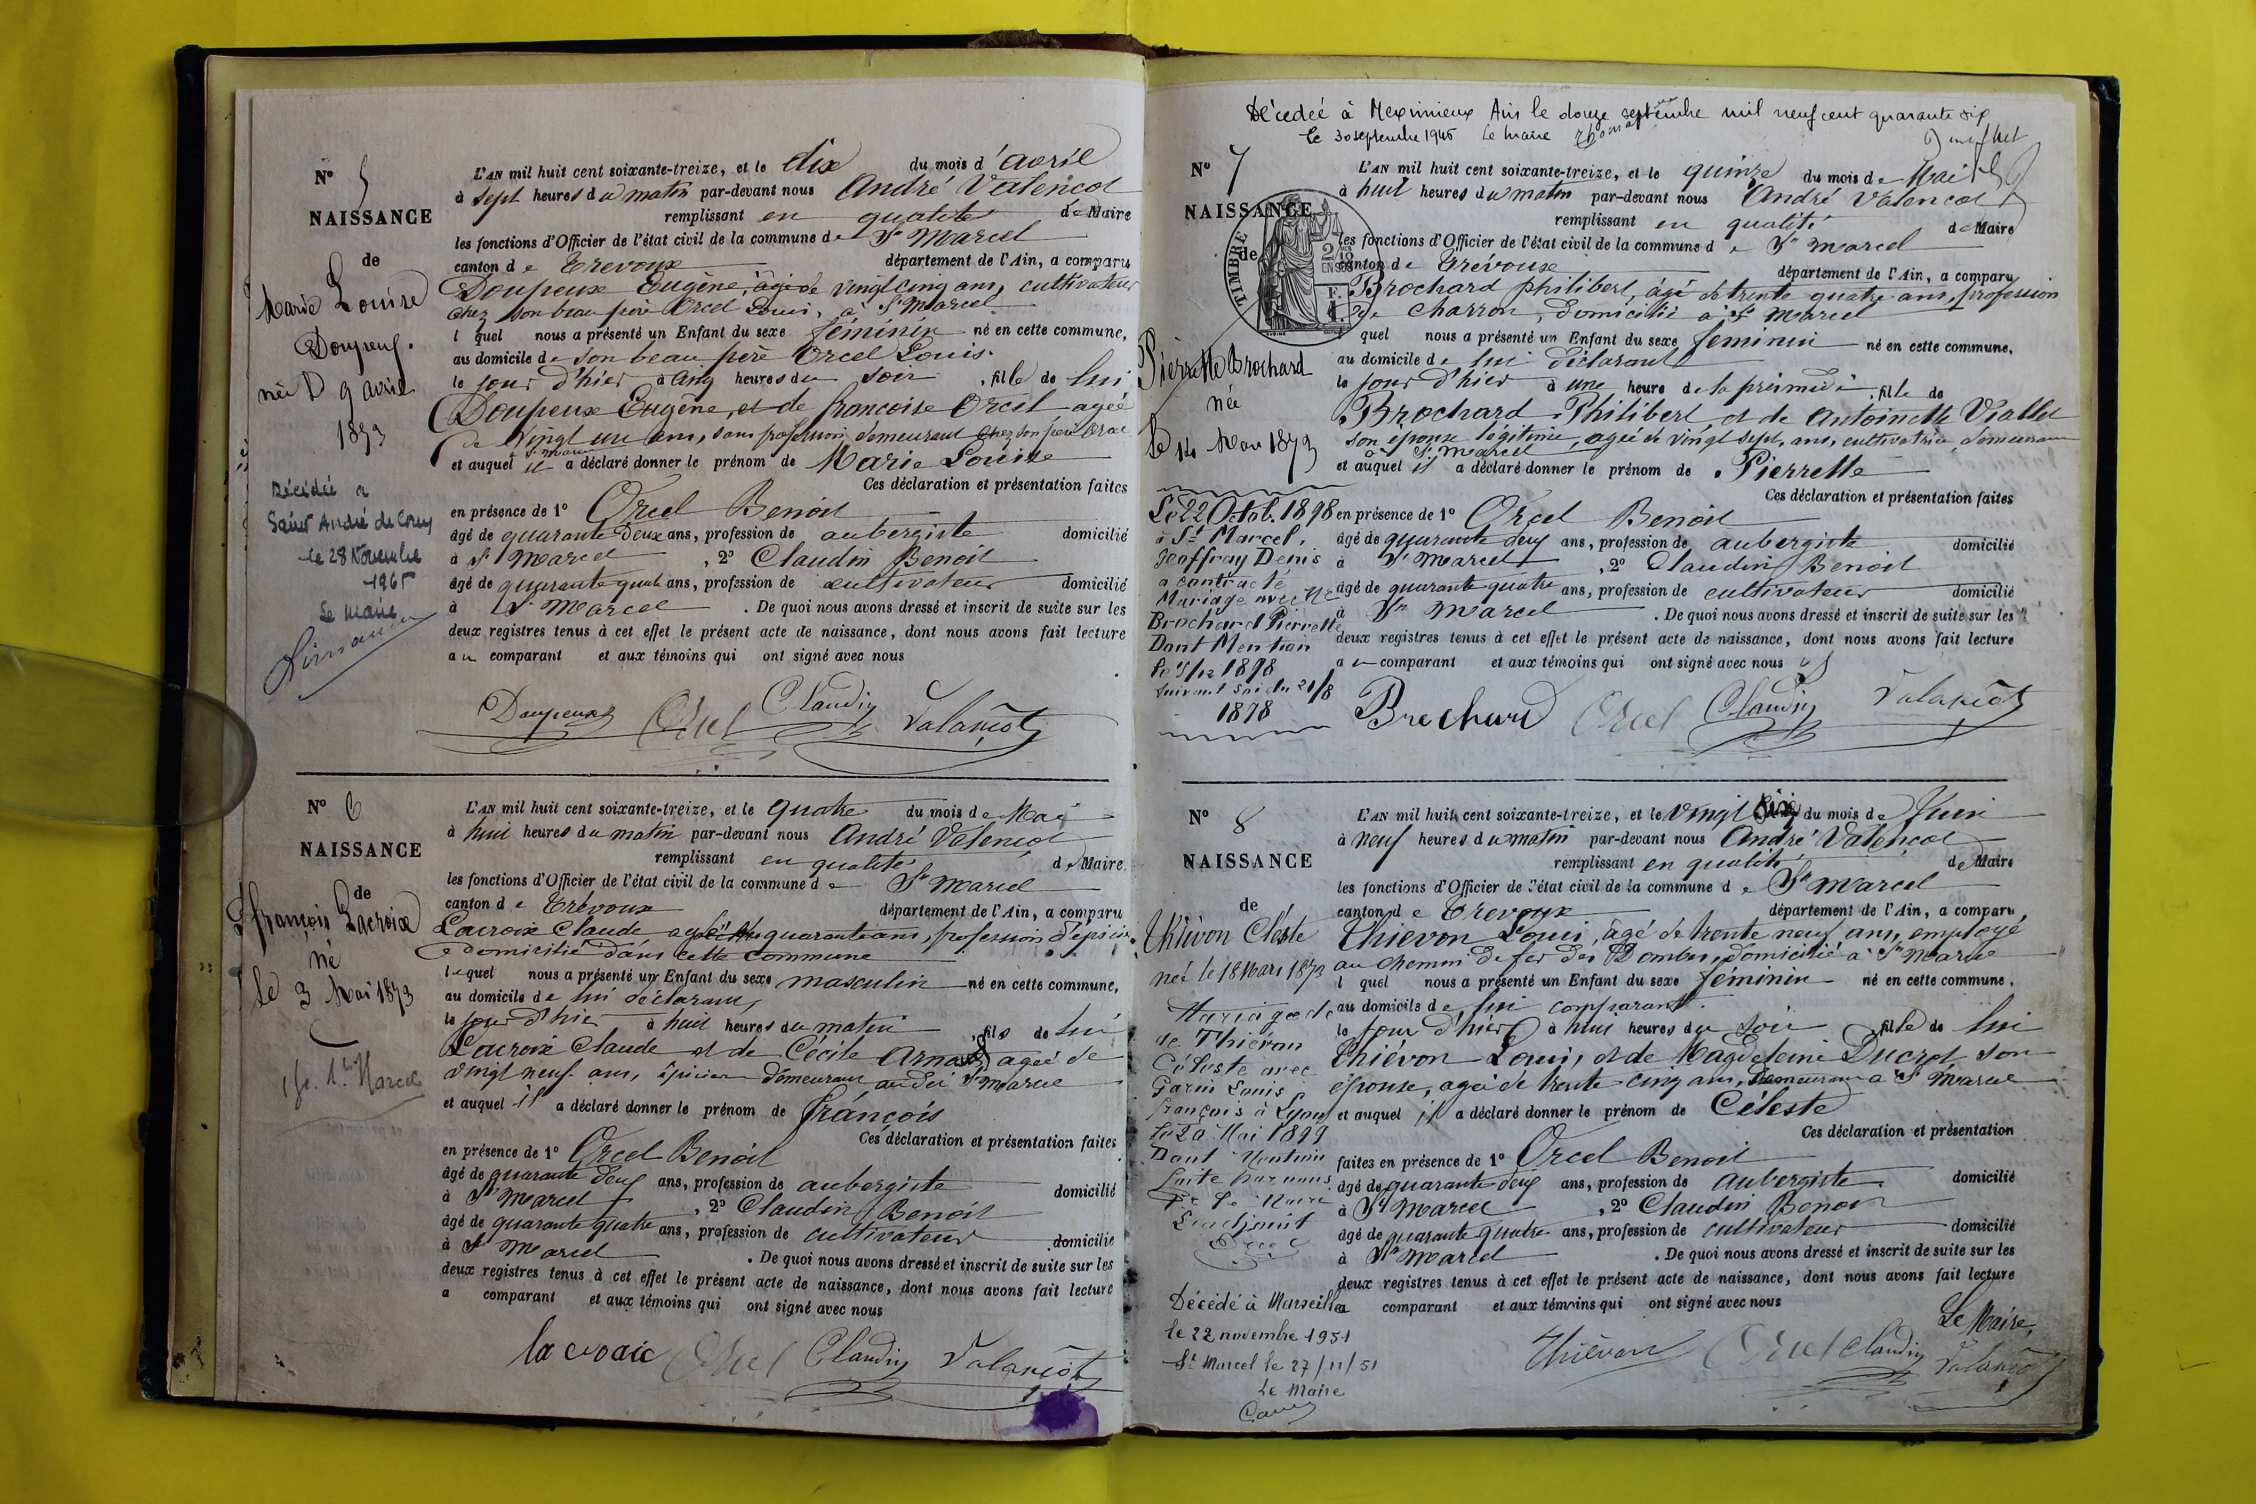 N° 5
NAISSANCE
de
Marie Louise
Doupeux.
née le 9 avril
1873
Décédée à
Saint André de Corcy
le 28 Novembre
1965
Le Maire
L'AN mil huit cent soixante-treize, et le dix du mois d'avril
à sept heures du matin par-devant nous André Valençot
remplissant en qualité de Maire
les fonctions d'Officier de l'état civil de la commune de St Marcel
canton de Trévoux département de l'Ain, a comparu
Doupeux Eugène, âgé de vingt cinq ans, cultivateur
chez son beau père Orcel Louis, à St Marcel
lequel nous a présenté un Enfant du sexe féminin né en cette commune,
au domicile de son beau père Orcel Louis.
le jour d'hier à cinq heures du soir, fille de lui
Doupeux Eugène, et de françoise Orcel agée
de vingt un ans, sans profession demeurant chez son père Orcel
à St Marcel
et auquel il a déclaré donner le prénom de Marie Louise
Ces déclaration et présentation faites
en présence de 1° Orcel Benoit
âgé de quarante deux ans, profession de aubergiste domicilié
à St Marcel, 2° Claudin Benoit
âgé de quarante quatre ans, profession de cultivateur domicilié
à St Marcel. De quoi nous avons dressé et inscrit de suite sur les
deux registres tenus à cet effet le présent acte de naissance, dont nous avons fait lecture
au comparant et aux témoins qui ont signé avec nous
Doupeux Orcel Claudin Valançot
N° 6
NAISSANCE
de
françois Lacroix
né
le 3 Mai 1873
L'AN mil huit cent soixante-treize, et le quatre du mois de Mai
à huit heures du matin par-devant nous André Valençot
remplissant en qualité de Maire
les fonctions d'Officier de l'état civil de la commune de St Marcel
canton de Trévoux département de l'Ain, a comparu
Lacroix Claude agé de quarante ans, profession d'épicier
domicilié dans cette commune
lequel nous a présenté un Enfant du sexe masculin né en cette commune,
au domicile de lui déclarant,
le jour d'hier à huit heures du matin, fils de lui
Lacroix Claude et de Cécile agée de
vingt neuf ans, épicier demeurant au dit St Marcel
et auquel il a déclaré donner le prénom de françois
Ces déclaration et présentation faites
en présence de 1° Orcel Benoit
âgé de quarante deux ans, profession de aubergiste domicilié
à St Marcel, 2° Claudin Benoit
âgé de quarante quatre ans, profession de cultivateur domicilié
à St Marcel. De quoi nous avons dressé et inscrit de suite sur les
deux registres tenus à cet effet le présent acte de naissance, dont nous avons fait lecture
a comparant et aux témoins qui ont signé avec nous
la croaic Orcel Claudin Valançot
Décédée à Meximieux Ain le douze septembre mil neuf cent quarante six
Le 30 septembre 1946 Le Maire
N° 7
NAISSANCE
de
TIMBRE
Pierrette Brochard
née
le 14 Mai 1873
Le 22 Octob. 1898
à St Marcel,
Geoffray Denis
a contracté
Mariage avec
Brochard Pierrette
Dont Mention
1898
L'AN mil huit cent soixante-treize, et le quinze du mois de Mai
à huit heures du matin par-devant nous André Valençot
remplissant en qualité de Maire
les fonctions d'Officier de l'état civil de la commune de St Marcel
canton de Trévoux département de l'Ain, a comparu
Brochard philibert, âgé de trente quatre ans, profession
de charron, domicilié à St Marcel
lequel nous a présenté un Enfant du sexe féminin né en cette commune,
au domicile de lui déclarant
le jour d'hier à une heure de la fille de
Brochard Philibert, et de Antoinette Viallet
son épouse légitime, agée de vingt sept ans, cultivatrice, demeurant
à St Marcel
et auquel il a déclaré donner le prénom de Pierrette
Ces déclaration et présentation faites
en présence de 1° Orcel Benoit
âgé de quarante deux ans, profession de aubergiste domicilié
à St Marcel, 2° Claudin Benoit
âgé de quarante quatre ans, profession de cultivateur domicilié
à St Marcel. De quoi nous avons dressé et inscrit de suite sur les
deux registres tenus à cet effet le présent acte de naissance, dont nous avons fait lecture
au comparant et aux témoins qui ont signé avec nous
Brochard Orcel Claudin Valançot
N° 8
NAISSANCE
de
Thiévon Céleste
née le 18 Mars 1873
Mariage de
de Thiévon
Céleste avec
Louis
françois à Lyon
le 20 Mai 1899
Dont Mention
faite par nous
Le Maire
L'adjoint
Décédé à Marseille
le 22 novembre 1951
St Marcel le 27/11/51
Le Maire
L'AN mil huit cent soixante-treize, et le vingt six du mois de Juin
à neuf heures du matin par-devant nous André Valençot
remplissant en qualité de Maire
les fonctions d'Officier de l'état civil de la commune de St Marcel
canton de Trévoux département de l'Ain, a comparu,
Thievon Louis, âgé de trente neuf ans, employé
au chemin de fer des Dombes, domicilié à St Marcel
lequel nous a présenté un Enfant du sexe féminin né en cette commune,
au domicile de lui comparant.
le jour d'hier à huit heures du soir, fille de lui
Thiévon Louis, et de Magdeleine Ducrot son
épouse, agée de trente cinq ans, demeurant à St Marcel
et auquel il a déclaré donner le prénom de Céleste
Ces déclaration et présentation
faites en présence de 1° Orcel Benoit
âgé de quarante deux ans, profession de aubergiste domicilié
à St Marcel, 2° Claudin Benoit
âgé de quarante quatre ans, profession de cultivateur domicilié
à St Marcel. De quoi nous avons dressé et inscrit de suite sur les
deux registres tenus à cet effet le présent acte de naissance, dont nous avons fait lecture
a comparant et aux témoins qui ont signé avec nous
Le Maire,
Thiévon Orcel Claudin Valançot